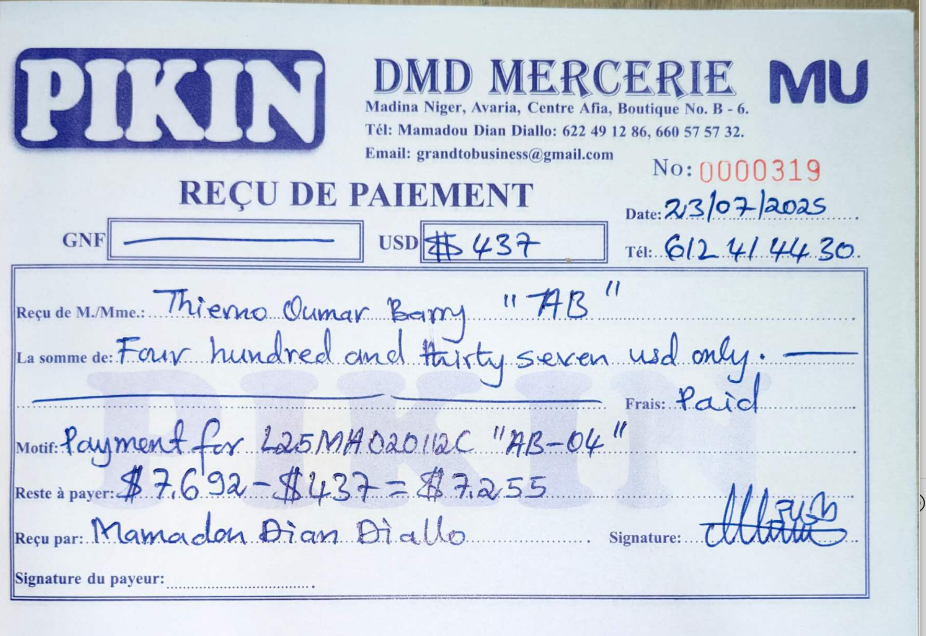 PIKIN
DMD MERCERIE
MU
Madina Niger, Avaria, Centre Afia, Boutique No. B - 6.
Tél: Mamadou Dian Diallo: 622 49 12 86, 660 57 57 32.
Email: grandtobusiness@gmail.com
No: 0000319
REÇU DE PAIEMENT
Date: 23/07/2025
GNF
USD $ 437
Tél: 612 41 44 30
Reçu de M./Mme.: Thierno Oumar Barry "AB"
La somme de: Four hundred and thirty seven usd only.
Frais: Paid
Motif: Payment for L25MA020112C "AB-04"
Reste à payer: $ 7.692 - $ 437 = $ 7.255
Reçu par: Mamadou Dian Diallo
Signature:
Signature du payeur:
PIKIN